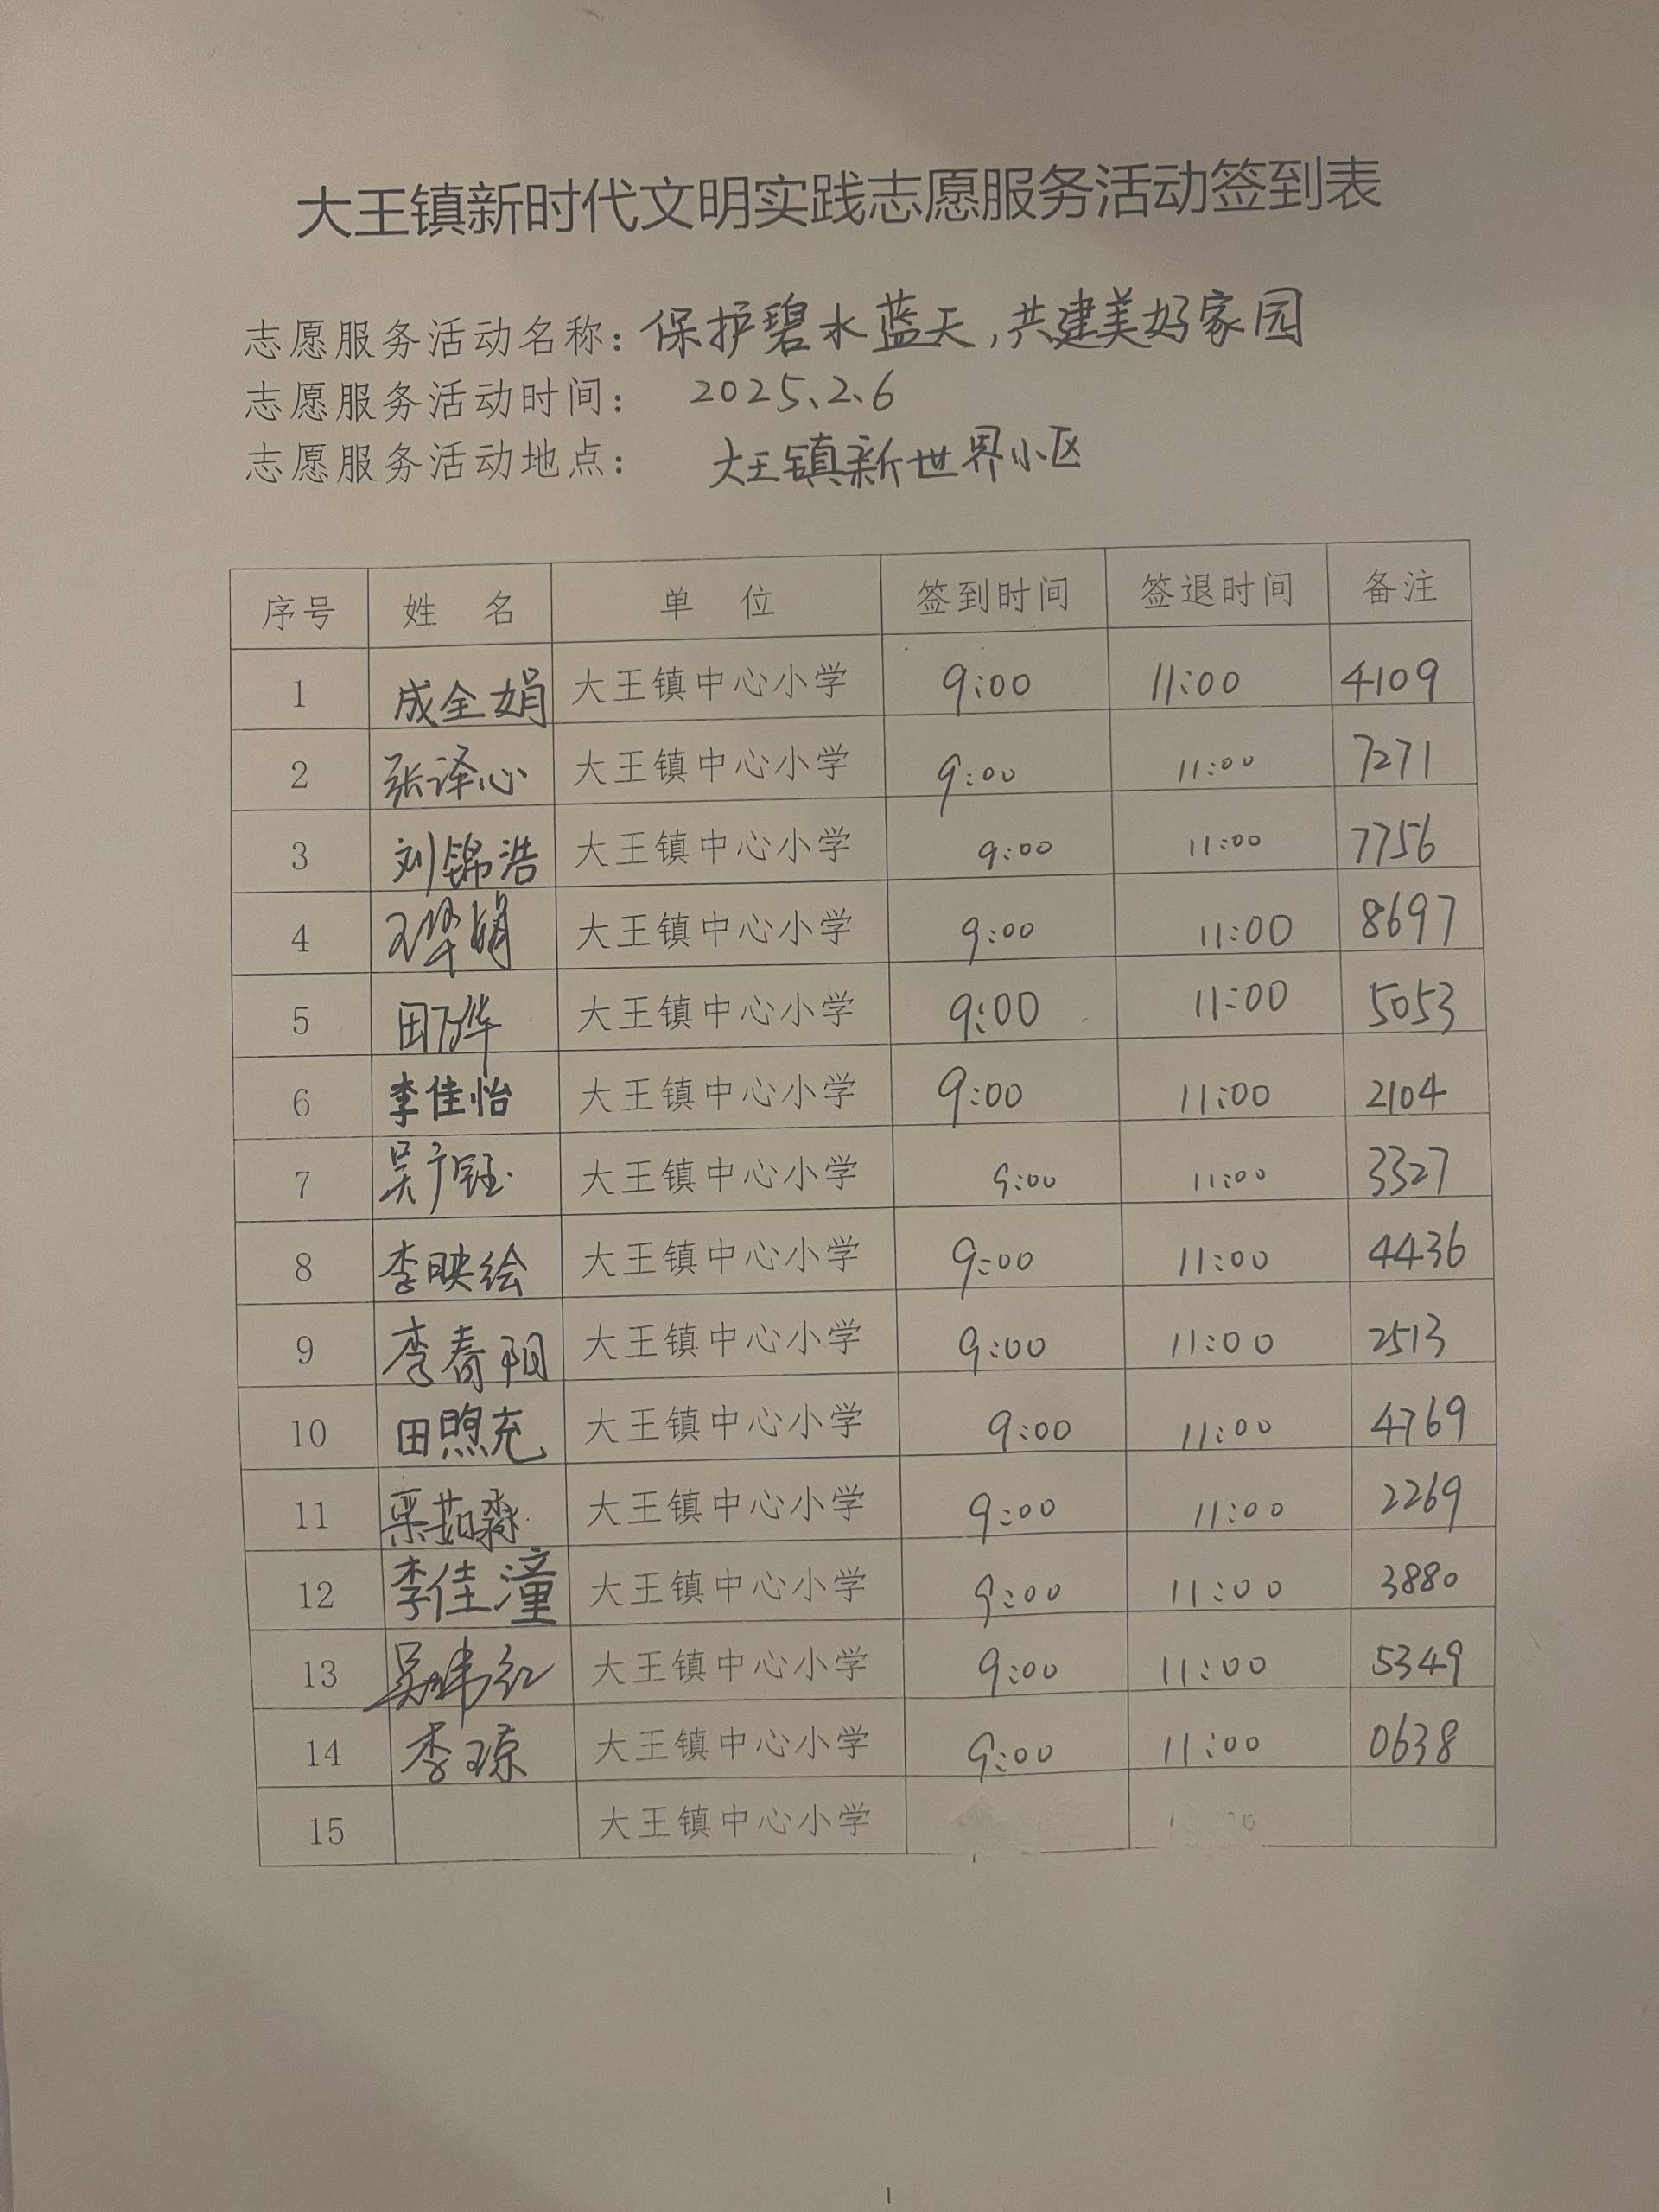 大王镇新时代文明实践志愿服务活动签到表
志愿服务活动名称：保护碧水蓝天，共建美好家园
志愿服务活动时间： 2025、2、6
志愿服务活动地点： 大王镇新世界小区
序号 姓 名 单 位 签到时间 签退时间 备注
1 成全娟 大王镇中心小学 9:00 11:00 4109
2 张译心 大王镇中心小学 9:00 11:00 7271
3 刘锦浩 大王镇中心小学 9:00 11:00 7756
4 大王镇中心小学 9:00 11:00 8697
5 大王镇中心小学 9:00 11:00 5053
6 李佳怡 大王镇中心小学 9:00 11:00 2104
7 吴广钰 大王镇中心小学 9:00 11:00 3327
8 李映绘 大王镇中心小学 9:00 11:00 4436
9 李春阳 大王镇中心小学 9:00 11:00 2513
10 田煦充 大王镇中心小学 9:00 11:00 4769
11 大王镇中心小学 9:00 11:00 2269
12 李佳潼 大王镇中心小学 9:00 11:00 3880
13 大王镇中心小学 9:00 11:00 5349
14 李琼 大王镇中心小学 9:00 11:00 0638
15 大王镇中心小学
1